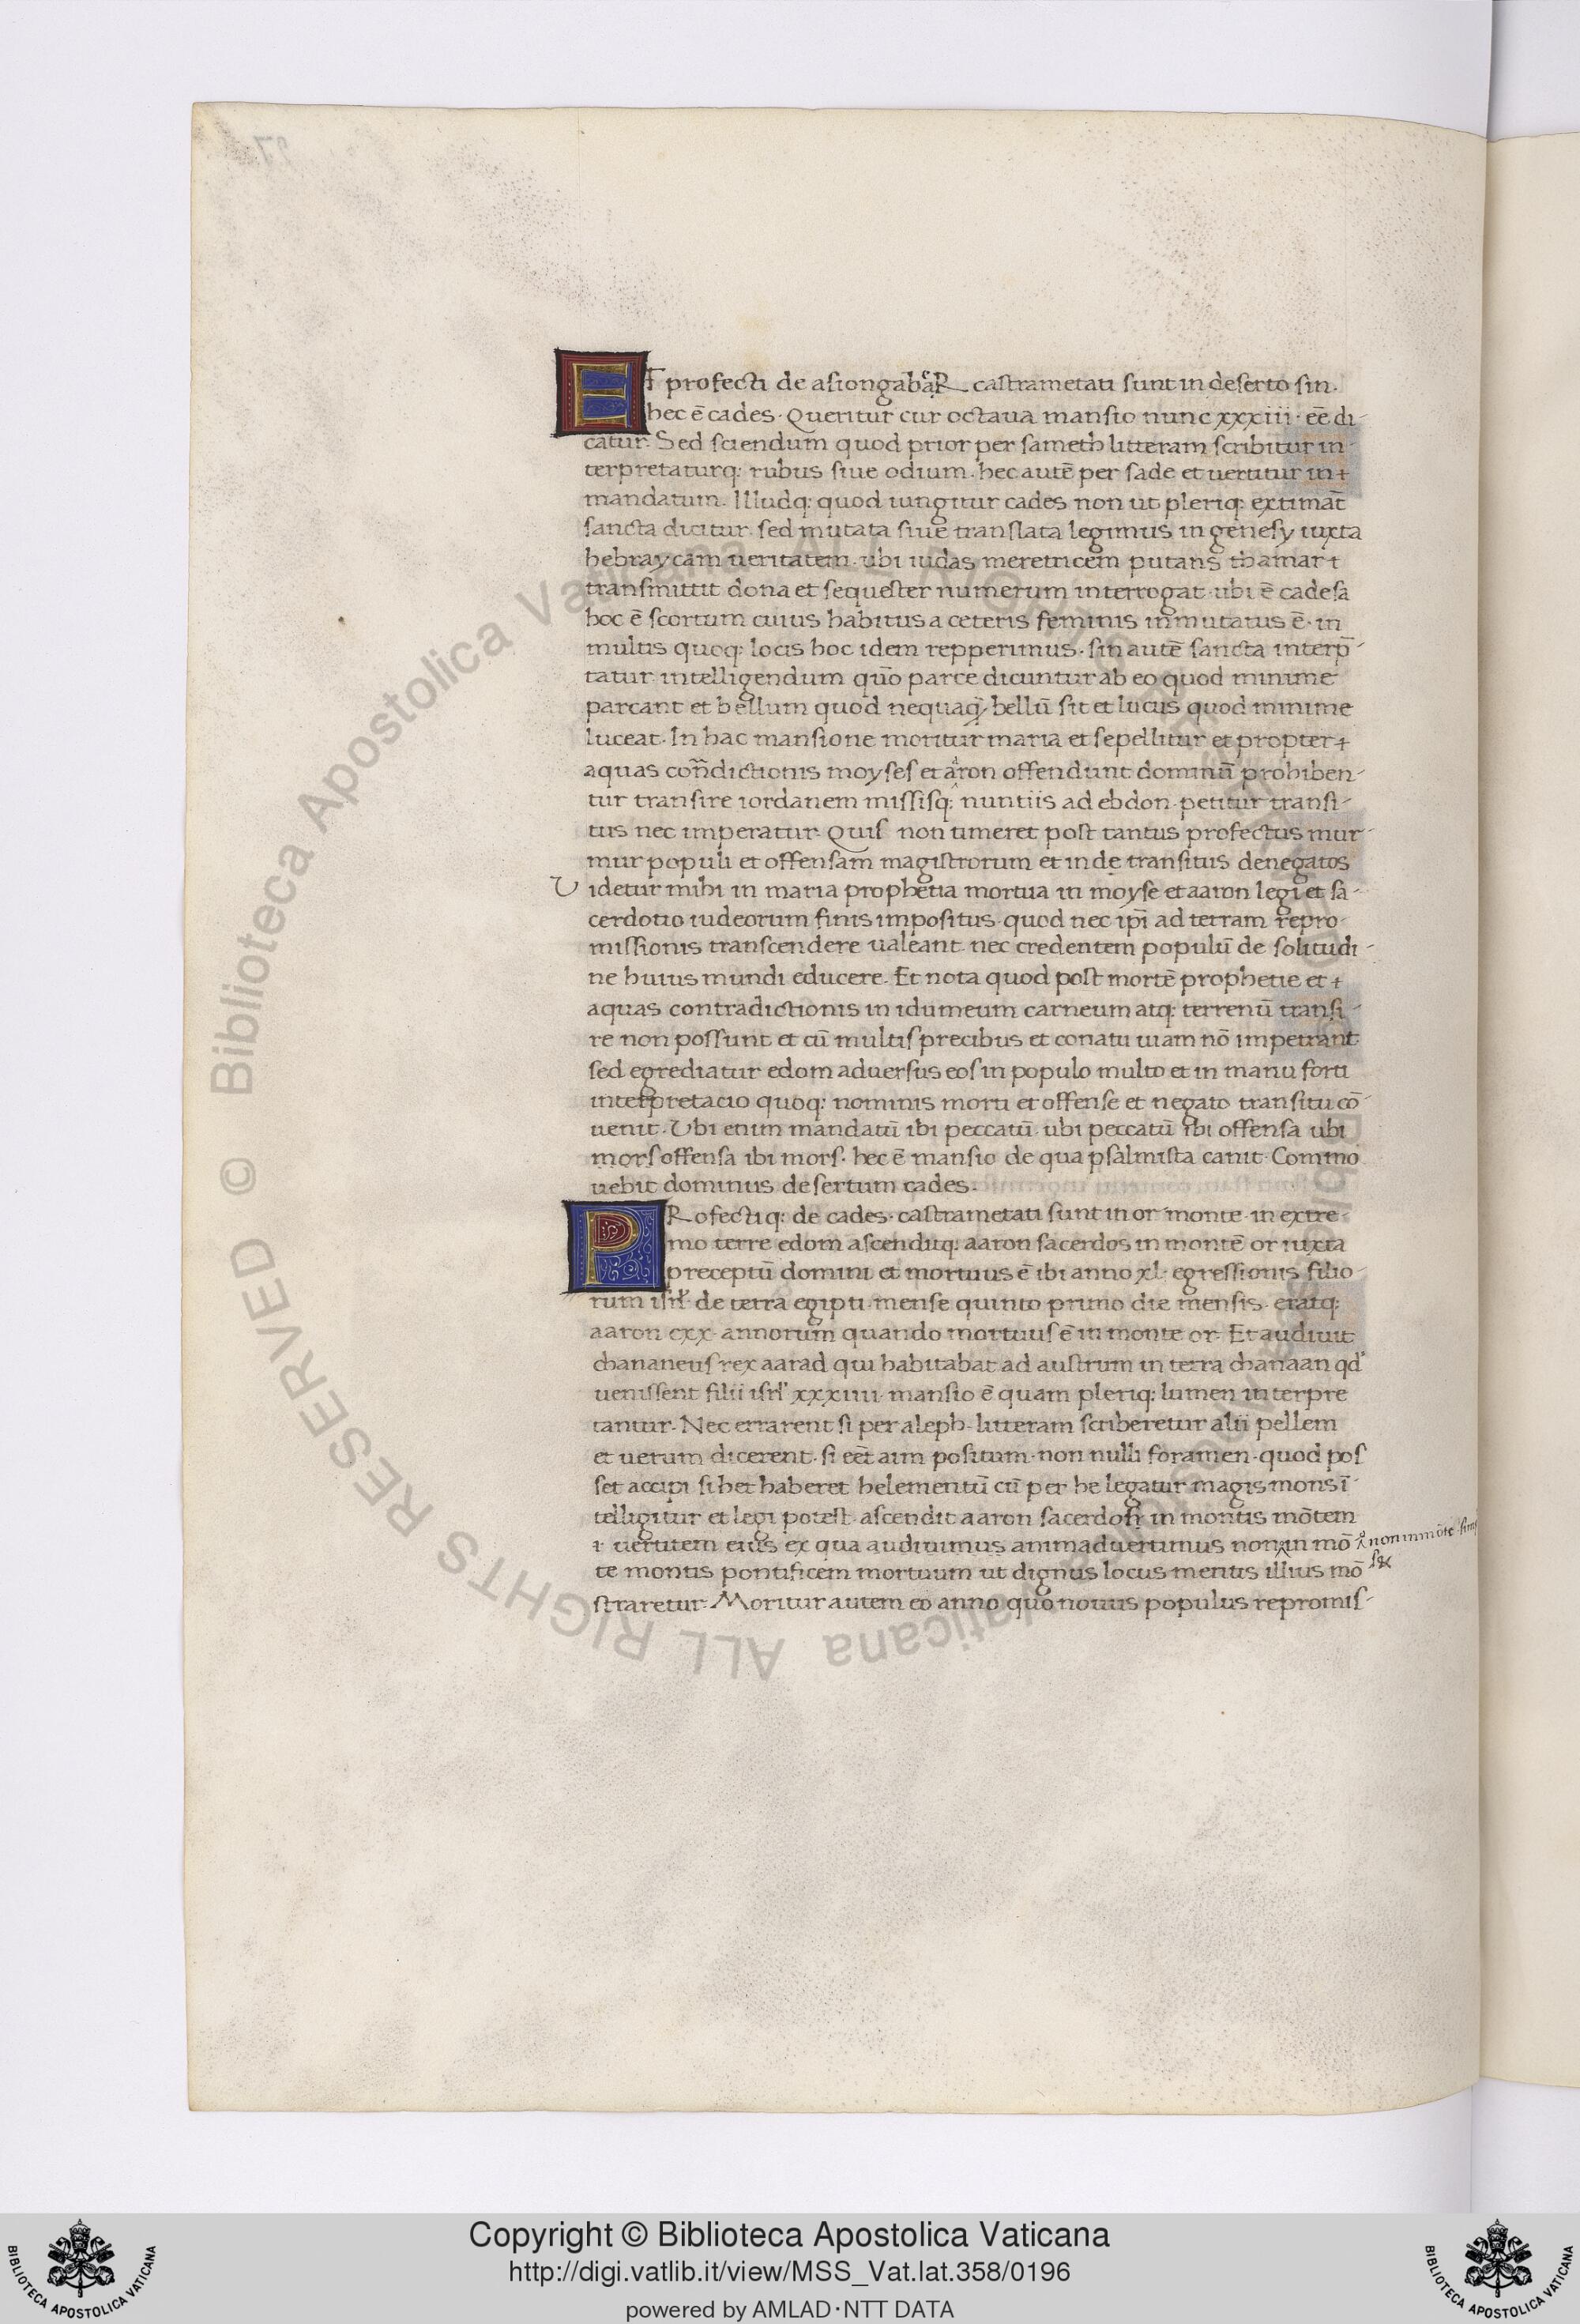 ET profecti de asiongabeR castrametati sunt in deserto sin.
hec ē cades. Queritur cur octaua mansio nunc xxxiii. eē di-
catur. Sed sciendum quod prior per samech litteram scribitur in-
terpretaturq: rubus siue odium. hec autē per sade et uertitur in
mandatum. Illudq: quod iungitur cades non ut pleriq: extimāt
sancta dicitur. sed mutata siue translata legimus in genesy iuxta
hebraycam ueritatem. ubi iudas meretricem putans thamar
transmittit dona et sequester numerum interrogat. ubi ē cadesa
hoc ē scortum cuius habitus a ceteris feminis inmutatus ē. in
multis quoq: locis hoc idem repperimus. sin autē sancta interp̄-
tatur intelligendum quō parce dicuntur ab eo quod minime
parcant et bellum quod nequaq̨ bellū sit et lucus quod minime
luceat. In hac mansione moritur maria et sepellitur et propter
aquas con̄dictionis moyses et aaron offendunt dominū prohiben-
tur transire iordanem missisq: nuntiis ad ebdon. petitur transi-
tus nec imperatur. Quis non timeret post tantus profectus mur-
mur populi et offensam magistrorum et inde transitus denegatos
Uidetur mihi in maria prophetia mortua in moyse et aaron legi et sa-
cerdotio iudeorum finis impositus. quod nec ip̄i ad terram repro-
missionis transcendere ualeant. nec credentem populū de solitudi-
ne huius mundi educere. Et nota quod post mortē prophetie et
aquas contradictionis in idumeum carneum atq: terrenū transi-
re non possunt et cū multis precibus et conatu uiam nō impetrant
sed egrediatur edom aduersus eos in populo multo et in manu forti
interpretacio quoq: nominis morti et offense et negato transitu cō-
uenit. Ubi enim mandatū ibi peccatū. ubi peccatū ibi offensa ubi
mors offensa ibi mors. hec ē mansio de qua psalmista canit. Commo
uebit dominus desertum cades.
PRofectiq: de cades. castrametati sunt in or monte. in extre-
mo terre edom ascenditq: aaron sacerdos in montē or iuxta
preceptū domini et mortuus ē ibi anno xl. egressionis filio-
rum isrl' de terra egipti. mense quinto primo die mensis. eratq:
aaron cxx. annorum quando mortuus ē in monte or. Et audiuit
chananeus rex aarad qui habitabat ad austrum in terra chanaan qd'
uenissent filii isrl' xxxiiii. mansio ē quam pleriq: lumen interpre
tantur. Nec errarent si per aleph. litteram scriberetur alii pellem
et uerum dicerent. si eēt aim positum. non nulli foramen. quod pos
set accipi si het haberet helementū cū per he legatur magis mons ī
telligitur et legi potest. ascendit aaron sacerdos in montis mōtem
i uertitem eius ex qua audiuimus animaduertimus non in mō
non in mōte simp
te montis pontificem mortuum ut dignus locus meritis illius mō
straretur. Moritur autem eo anno quo nouus populus repromis-
© Biblioteca Apostolica Vaticana ALL RIGHTS RESERVED
© Biblioteca Apostolica Vaticana ALL RIGHTS RESERVED
Copyright © Biblioteca Apostolica Vaticana
http://digi.vatlib.it/view/MSS_Vat.lat.358/0196
powered by AMLAD·NTT DATA
BIBLIOTECA APOSTOLICA VATICANA
BIBLIOTECA APOSTOLICA VATICANA